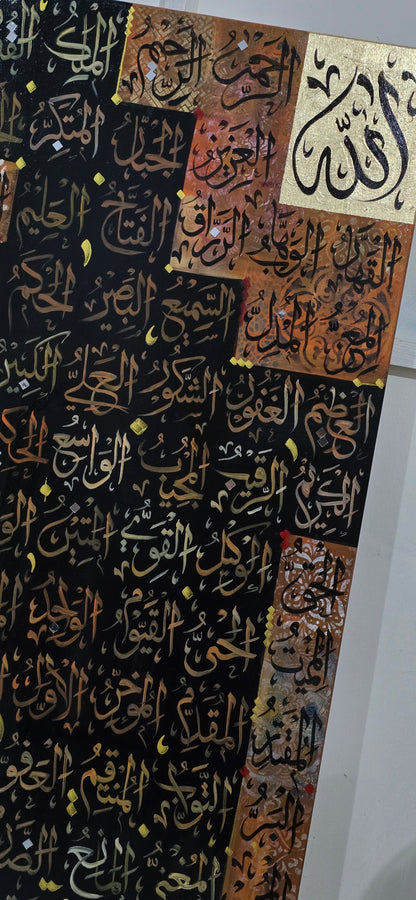 الله الرَّحْمٰنُ الرَّحِيمُ المَلِكُ
العَزِيزُ الجَبَّارُ المُتَكَبِّرُ
القَهَّارُ الوَهَّابُ الرَّزَّاقُ الفَتَّاحُ العَلِيمُ
المُعِزُّ المُذِلُّ السَّمِيعُ البَصِيرُ الحَكَمُ
العَظِيمُ الغَفُورُ الشَّكُورُ العَلِيُّ الكَبِيرُ
الكَرِيمُ الرَّقِيبُ المُجِيبُ الوَاسِعُ
الحَقُّ الوَكِيلُ القَوِيُّ المَتِينُ
المُمِيتُ الحَيُّ القَيُّومُ الوَاحِدُ
المُقْتَدِرُ المُقَدِّمُ المُؤَخِّرُ الأَوَّلُ
البَرُّ التَّوَّابُ المُنْتَقِمُ العَفُوُّ
المُغْنِي المَانِعُ